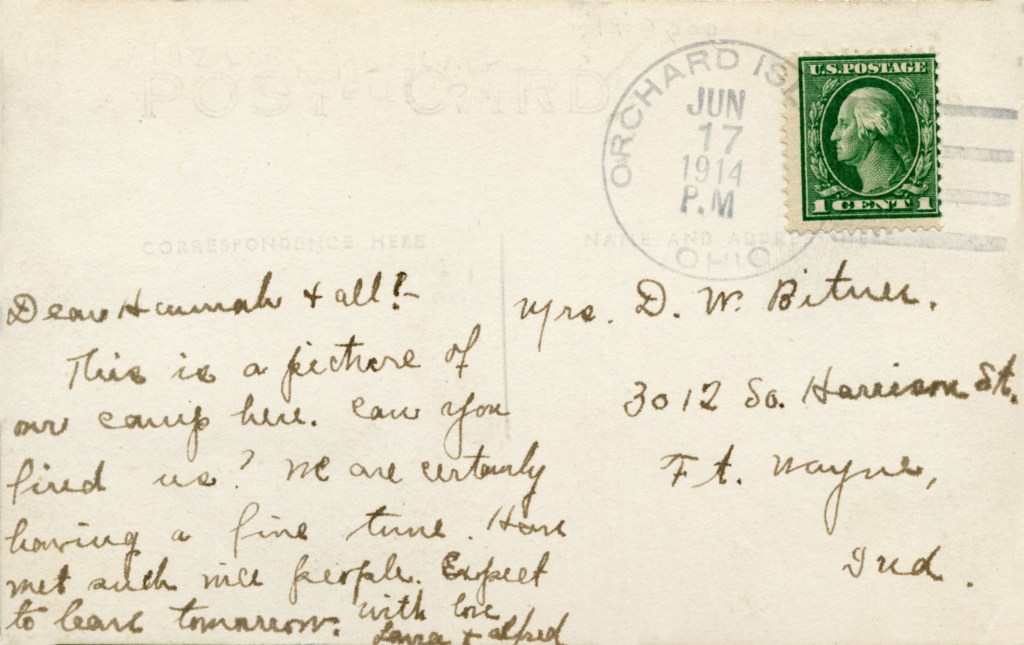 POST CARD
ORCHARD ISL
JUN
17
1914
P.M
OHIO
U.S. POSTAGE
1 CENT 1
CORRESPONDENCE HERE
NAME AND ADDRESS HERE
Dear Hannah + all!-
This is a picture of
our camp here. Can you
find us? We are certainly
having a fine time. Have
met such nice people. Expect
to leave tomorrow. with love
Laura + Alfred
Mrs. D. W. Bitner.
3012 So. Harrison St.
Ft. Wayne,
Ind.